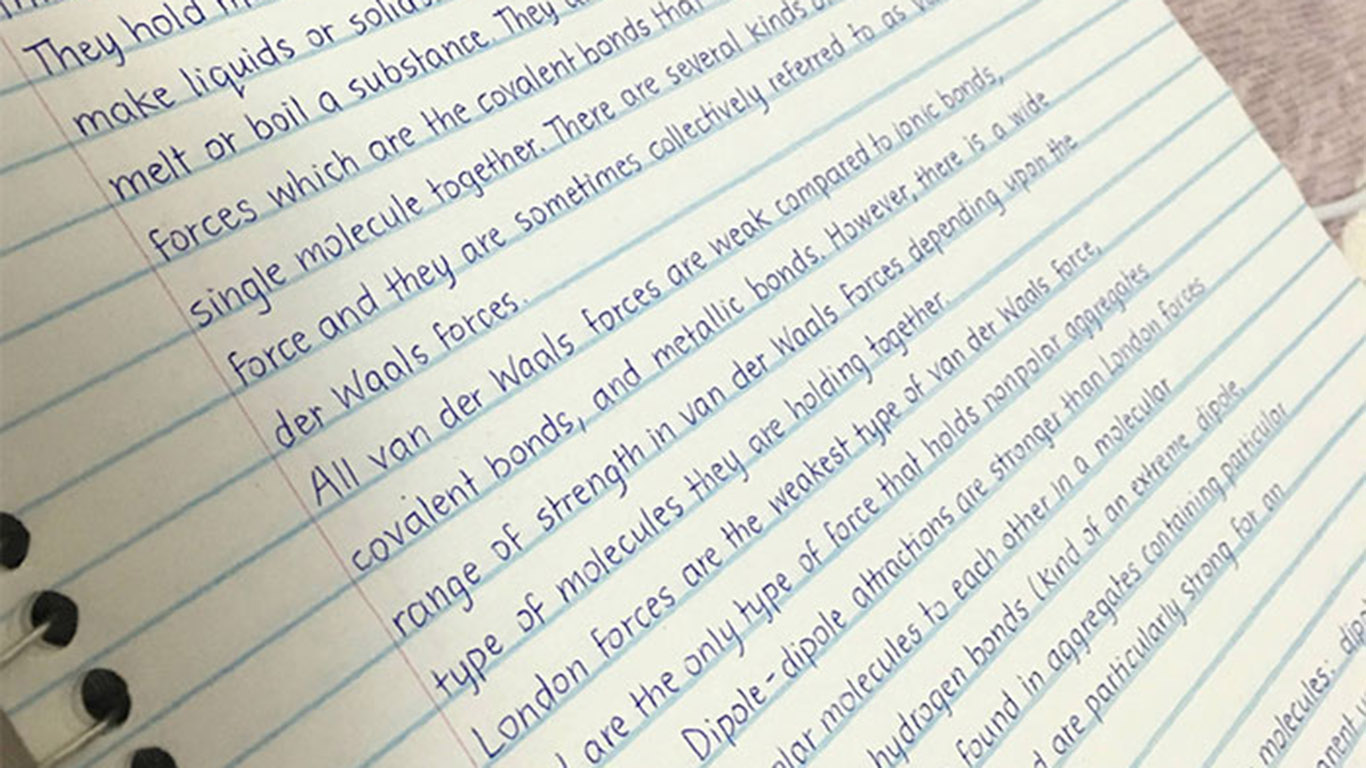 They hold
make liquids or solid
melt or boil a substance. They
forces which are the covalent bonds that
single molecule together. There are several kinds
force and they are sometimes collectively referred to as
der Waals forces.
All van der Waals forces are weak compared to ionic bonds,
covalent bonds, and metallic bonds. However, there is a wide
range of strength in van der Waals forces depending upon the
type of molecules they are holding together.
London forces are the weakest type of van der Waals force,
are the only type of force that holds nonpolar aggregates
Dipole-dipole attractions are stronger than London forces
molecules to each other in a molecular
hydrogen bonds (kind of an extreme dipole
found in aggregates containing particular
are particularly strong for an
molecules: